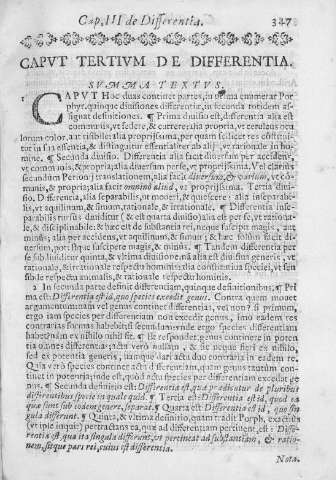 Cap. III de Differentia. 347
CAPVT TERTIVM DE DIFFERENTIA.
SVMMA TEXTVS.
1 CAPVT Hoc duas continet partes, in prima enumerat Por
phyr. quinque diuisiones differentiæ, in secunda totidem as-
signat definitiones. ¶ Prima diuisio est, differentia alia est
communis, vt sedere, & currere alia propria, vt cæruleus ocu
lorum color, aut risibile: alia propriissima, per quam scilicet res constitui-
tur in sua essentia, & distinguitur essentialiter ab alijs, vt rationale in ho-
mine. ¶ Secunda diuisio. Differentia alia facit diuersum per accidens,
vt communis, & propria; alia diuersum per se, vt propriissima. Vel clarius
secundum translationem, alia facit
munis, & propria; alia facit omninò aliud, vt propriissima. Tertia diui-
sio. Differentia, alia separabilis, vt moueri, & quiescere: alia inseparabi-
lis, vt aquilinum, & simum, rationale, & irrationale. ¶ Differentia inse-
parabilis rursus diuiditur (& est quarta diuisio) alia est per se, vt rationa-
le, & disciplinabile: & hæc est de substantia rei, neque suscipit magis, aut
minus; alia per accidens, vt aquilinum, & simum; & hæc solùm facit di-
uersum, potestque suscipere magis, & minus. ¶ Tandem differentia per
se subdiuiditur quinta, & vltima diuisione: nã alia est diuisiua generis, vt
rationale, & irrationale respectu hominis: alia constitutiua speciei, vt sen
sibile respectu animalis, & rationale respectu hominis.
2 In secunda parte definit differentiam, quinque definitionibus; ¶ Pri
ma est: Differentia est id, quo species excedit genus. Contra quam mouet
argumentum: nam vel genus continet differentiam, vel non? si primum,
ergo iam species per differentiam non excedit genus, imò eadem res
contrarias formas habebit: si secundum: vnde ergo species differentiam
habet? nam ex nihilo nihil fit. ¶ Respondet, genus continere in poten
tia omnes differentias; actu verò nullam, & sic neque fieri ex nihilo,
sed ex potentia generis, namque dari actu duo contraria in eadem re.
Quia verò species continet actu differentiam, quam genus tantùm con-
tinet in potentia; inde est, quòd actu species per differentiam excedat ge-
nus. ¶ Secunda definitio est: Differentia est, quæ prædicatur de pluribus
differentibus specie in quale quid. ¶ Tertia est: Differentia est id, quod ea
quæ sunt sub eodem genere, separat. ¶ Quarta est: Differentia est id, quo sin
gula differunt. ¶ Quinta, & vltima definitio, quam tradit Porph. exactius
(vt ipse inquit) pertractans ea, quæ ad differentiam pertinent, est: Diffe-
rentia est, qua ita singula differunt, vt pertineat ad substantiam, & ratio-
nem, sitque pars rei, cuius est differentia.
Nota.